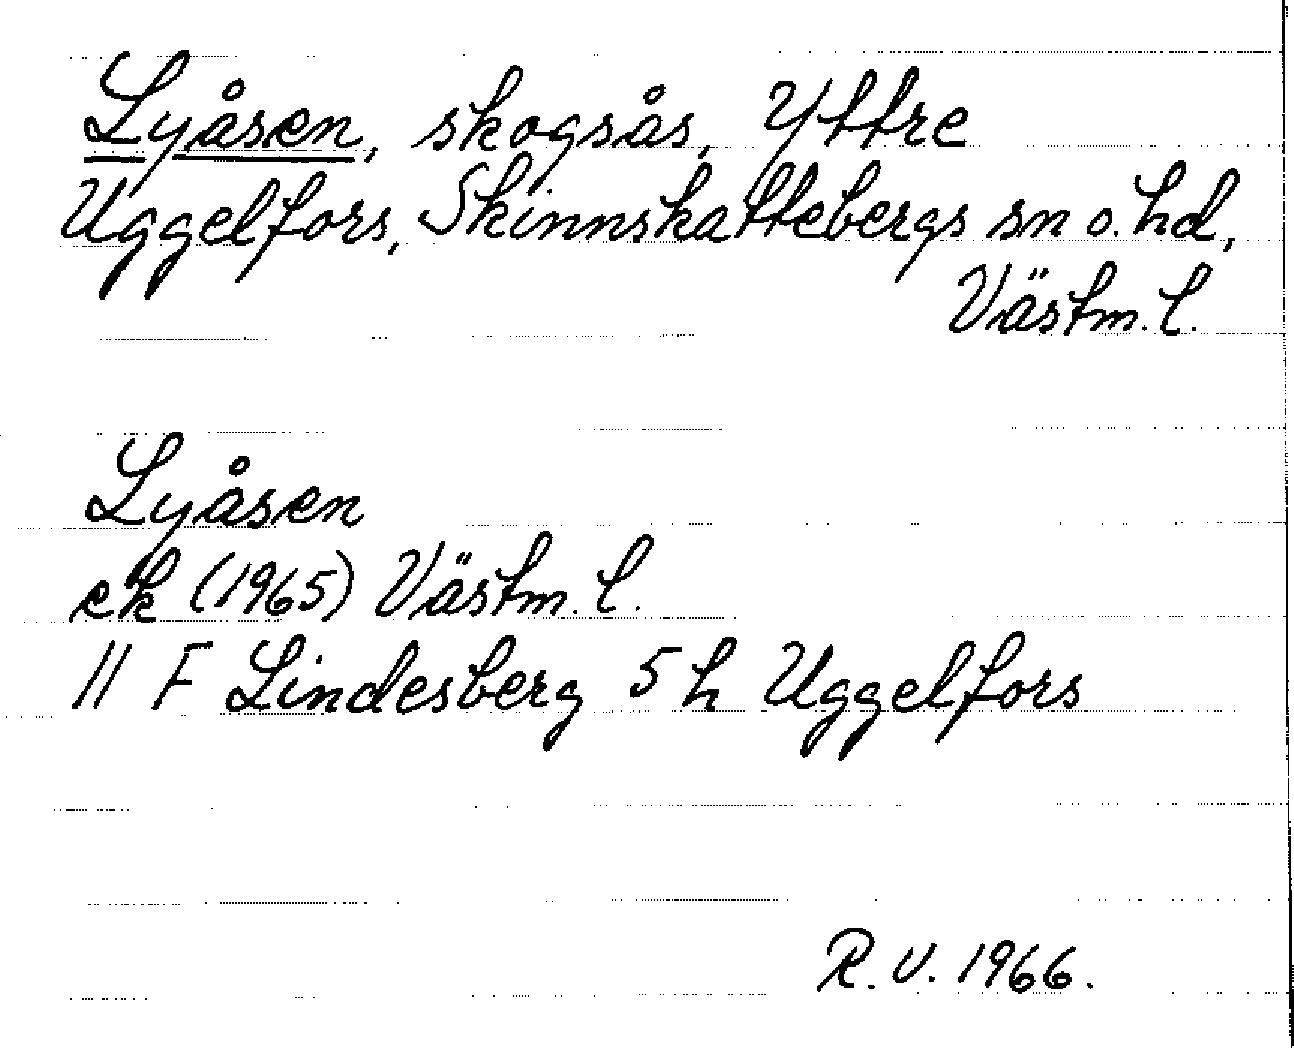 Lyåsen, skogsås, Yttre
Uggelfors, Skinnskattebergs sn o. hd,
Västm. l.
Lyåsen
ek (1965) Västm. l.
11 F Lindesberg 5 h Uggelfors
R. V. 1966.